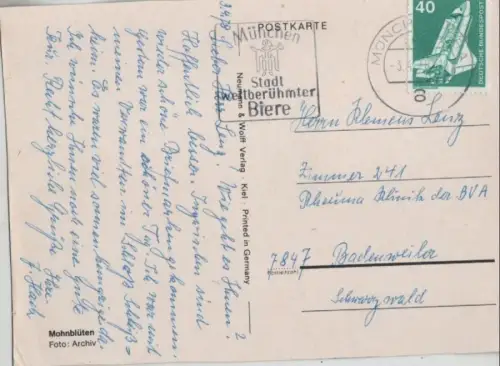 POSTKARTE
München
Stadt
weltberühmter
Biere
MÜNCHEN
40
DEUTSCHE BUNDESPOST
Lieber Herr Lenz! Wie geht es Ihnen?
Hoffentlich besser. Inzwischen sind
wieder schöne Briefmarken gekommen.
Gestern war ein schöner Tag. Ich war mit
meiner Verwandten im Schloß Schleiß=
heim. Es waren viel
Ich wünsche Ihnen noch eine gute
Kur. Recht herzliche Grüße Ihre
Mohnblüten
Foto: Archiv
Neumann & Wolff Verlag · Kiel · Printed in Germany
2
Herrn Klemens Lenz
Zimmer 241
Rheuma Klinik der BVA
7847 Badenweiler
Schwarzwald